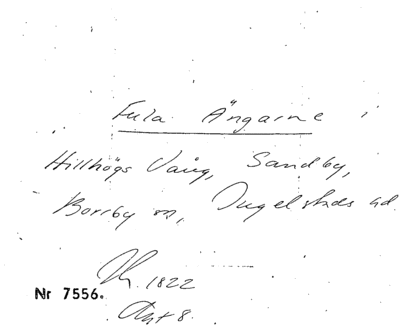 Fula Ängarne
Hillhögs Vång, Sandby,
Borrby sn, Ingelstads hd
1822
Nr 7556.
Akt 8.